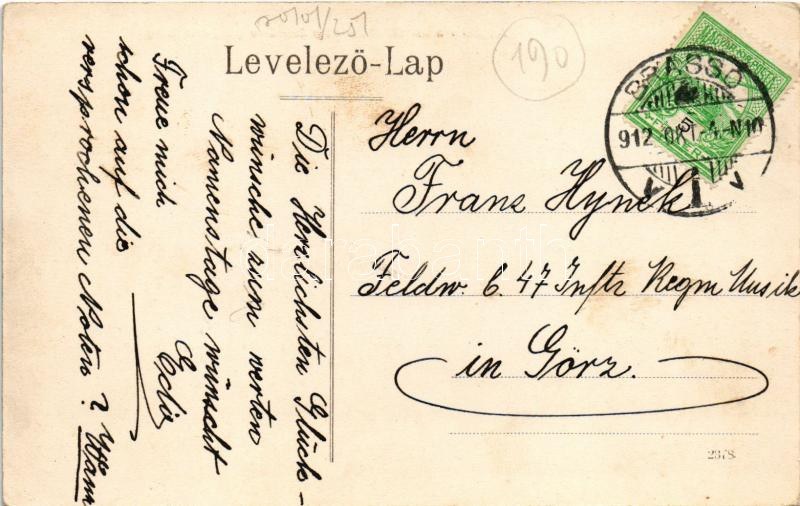 190
Levelezö-Lap
BRASSÓ
912
Herrn
Franz Hynek
Feldw. b. 47 Inftr Regm Musik
in Görz.
2378.
Die Herzlichsten Glück-
wünsche zum werten
Namenstage wünscht
Freue mich
schon auf die
versprochenen Noten? Wann